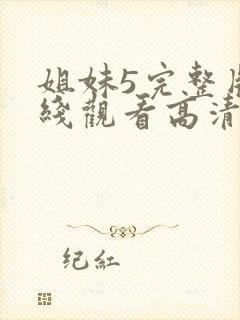 姐妹5完整
綫觀看高清
纪紅